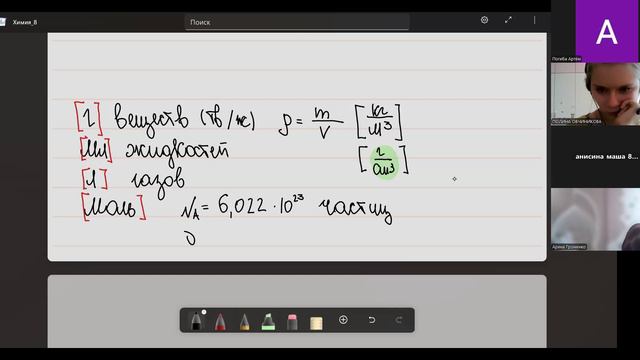 Химия_8
Поиск
[г] веществ (тв/ж) ρ = m/V [кг/м³]
[мл] жидкостей [г/см³]
[л] газов
[моль] N_A = 6,022 · 10²³ частиц
А
Погиба Артём
ПОЛИНА ОВЧИННИКОВА
анисина маша 8...
Арина Громенко